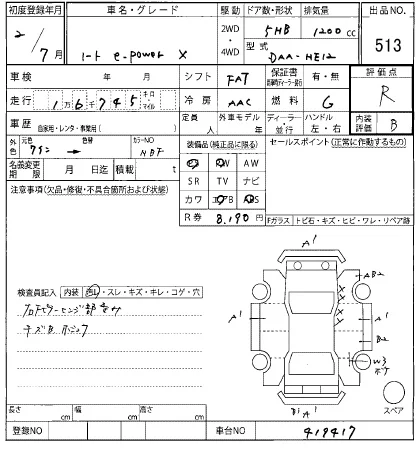 初度登録年月 車名・グレード 駆動 ドア数・形状 排気量 出品NO.
2/7月 ノート e-power X 2WD・4WD 5HB 1200cc 513
型式 DAA-HE12
車検 年 月 シフト FAT 保証書 有・無 評価点
走行 1万6千745 キロ マイル 冷房 AAC 燃料 G R
車歴 自家用・レンタ・事業用( ) 定員 人 外車モデル 年 ディーラー・並行 ハンドル 左・右 内装評価 B
外色 元色 色替 カラーNO NBF 装備品(純正品に限る) セールスポイント(正常に作動するもの)
名義変更期限 月 日迄 積載 t AW
注意事項(欠品・修復・不具合箇所および状態) SR TV ナビ
カワ
R券 8,190円 Fガラス トビ石・キズ・ヒビ・ワレ・リペア跡
A1
AB2
検査員記入 内装 ・スレ・キズ・キレ・コゲ・穴
A1
A1
B2
W3
A1
スペア
長さ cm 幅 cm 高さ cm
登録NO 車台NO 419417